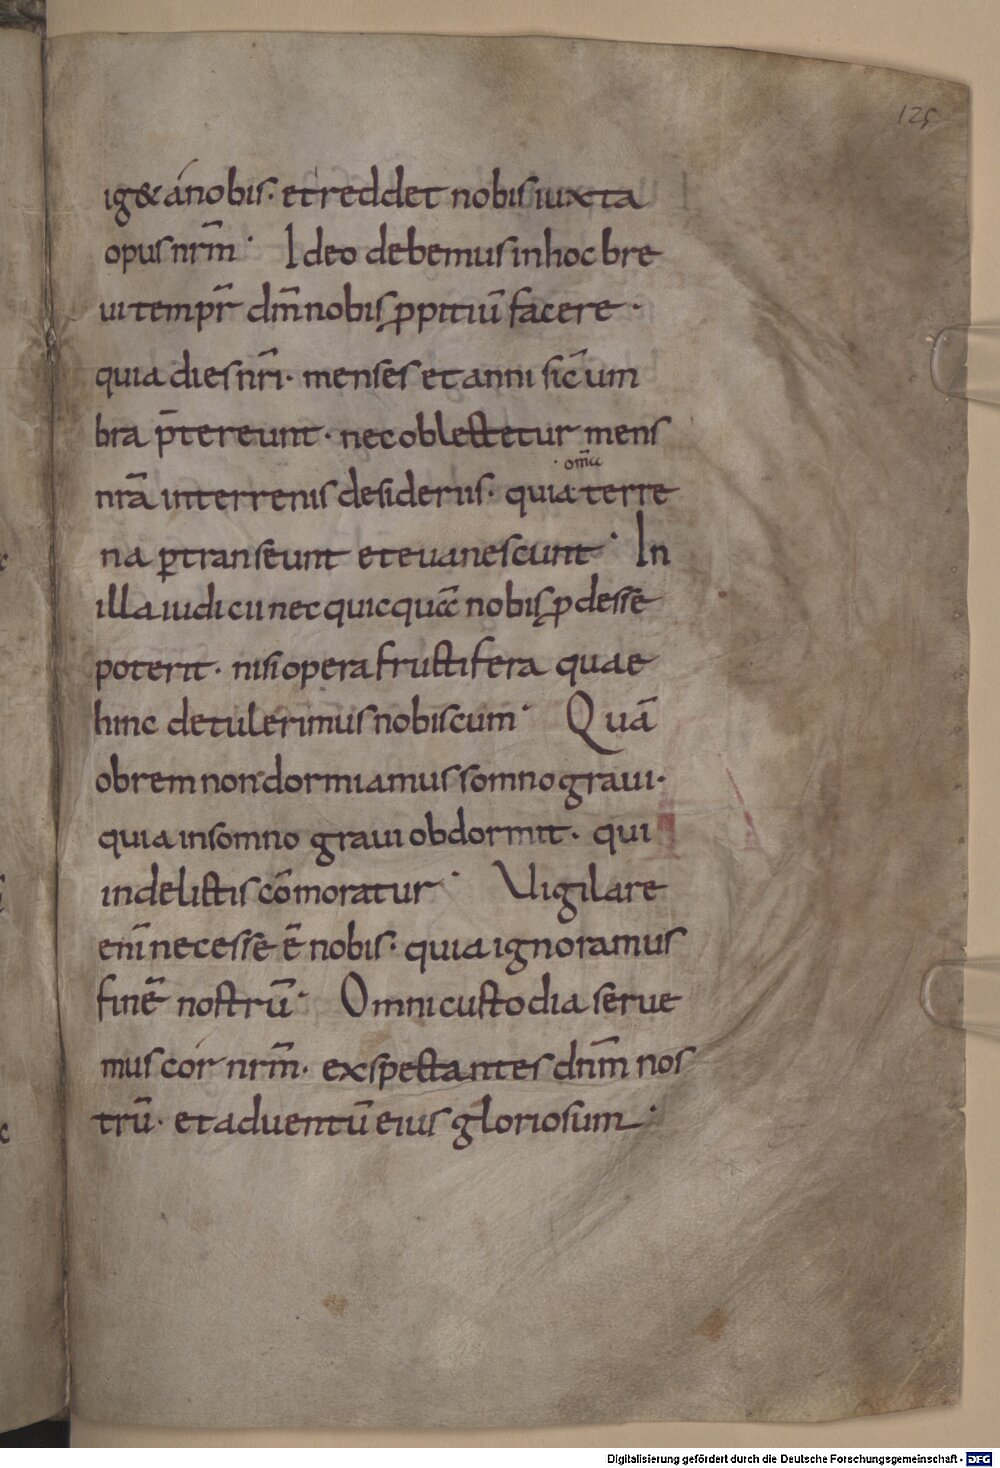 125
ig& a nobis· et reddet nobis iuxta
opus nr̄m· Ideo debemus in hoc bre
ui tempr̄ dm̄ nobis ꝓpitiū facere·
quia dies nr̄i· menses et anni sic̄ um
bra p̄tereunt· nec oblectetur mens
nrā in terrenis desideriis· quia terre
om̄a
na ꝑtranseunt et euanescunt· In
illa iudicii nec quicquā nobis ꝓdessē
poterit· nisi opera fructifera quae
hinc detulerimus nobiscum· Quā
obrem non dormiamus somno graui·
quia in somno graui obdormit· qui
in delictis cōmoratur· Uigilare
eni̅ necesse ē nobis· quia ignoramus
finē nostrū· Omni custodia serue
mus cor nr̄m· exspectantes dnm̄ nos
trū· et aduentū eius gloriosum·
Digitalisierung gefördert durch die Deutsche Forschungsgemeinschaft - DFG